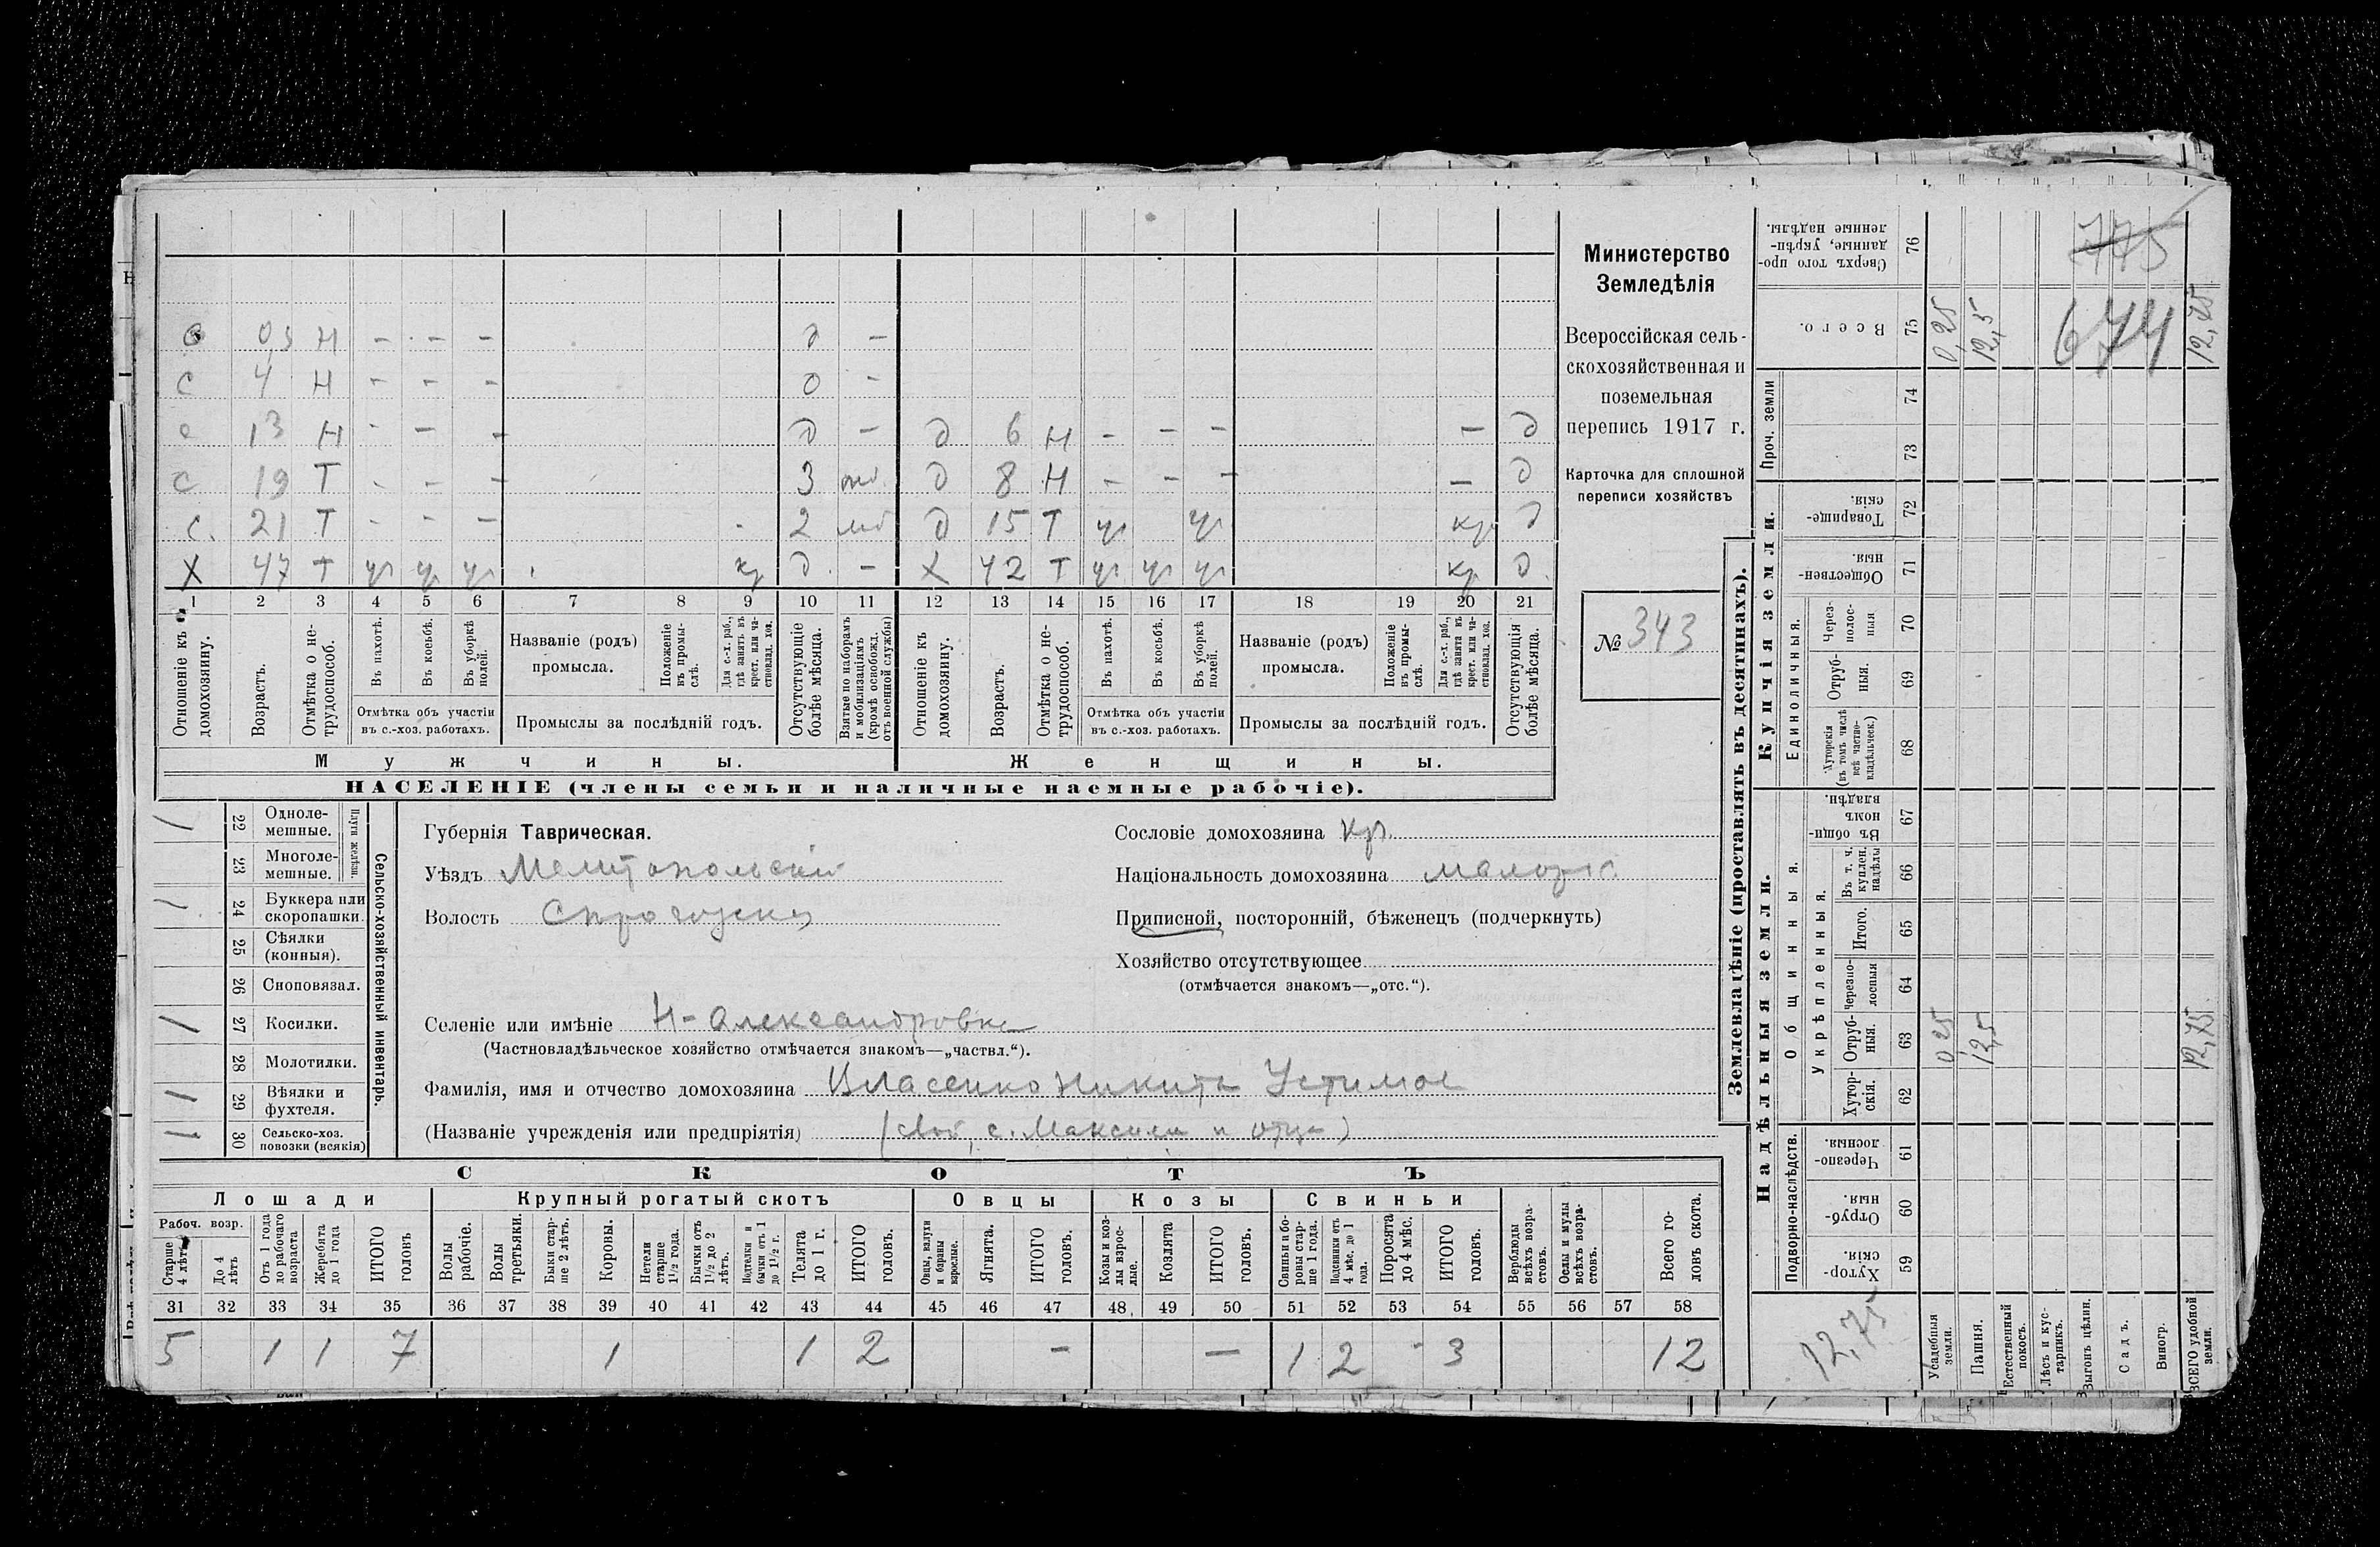 о 03 Н - - - д -
с 4 Н - - - д -
с 13 Н - - - д - д 6 Н - - - - д
с 19 Т - - - 3 мб д 8 Н - - - - д
с. 21 Т - - - 2 мб д 15 Т уч уч кр д
Х 47 Т уч уч уч кр д - Х 42 Т уч уч уч кр д
1 2 3 4 5 6 7 8 9 10 11 12 13 14 15 16 17 18 19 20 21
Отношеніе къ домохозяину.
Возрастъ.
Отмѣтка о нетрудоспособ.
Въ пахотѣ.
Въ косьбѣ.
Въ уборкѣ полей.
Отмѣтка объ участіи
въ с.-хоз. работахъ.
Названіе (родъ)
промысла.
Положеніе въ промыслѣ.
Для с.-х. раб., гдѣ занятъ въ крест. или частновлад. хоз.
Промыслы за послѣдній годъ.
Отсутствующіе болѣе мѣсяца.
Взятые по наборамъ и мобилизаціямъ (кромѣ освобожд. отъ военной службы)
Отношеніе къ домохозяину.
Возрастъ.
Отмѣтка о нетрудоспособ.
Въ пахотѣ.
Въ косьбѣ.
Въ уборкѣ полей.
Отмѣтка объ участіи
въ с.-хоз. работахъ.
Названіе (родъ)
промысла.
Положеніе въ промыслѣ.
Для с.-х. раб., гдѣ занята въ крест. или частновлад. хоз.
Промыслы за послѣдній годъ.
Отсутствующія болѣе мѣсяца.
Мужчины. Женщины.
НАСЕЛЕНІЕ (члены семьи и наличные наемные рабочіе).
Министерство
Земледѣлія
Всероссійская сель-
скохозяйственная и
поземельная
перепись 1917 г.
Карточка для сплошной
переписи хозяйствъ
№ 343
/ 22 Одноле-
мешные.
23 Многоле-
мешные.
Плуги желѣзн.
/ 24 Буккера или
скоропашки.
25 Сѣялки
(конныя).
26 Сноповязал.
/ 27 Косилки.
28 Молотилки.
/ 29 Вѣялки и
фухтеля.
/ 30 Сельско-хоз.
повозки (всякія)
Сельско-хозяйственный инвентарь.
Губернія Таврическая.
Уѣздъ Мелитопольскій
Волость
Селеніе или имѣніе Н-Александровка
(Частновладѣльческое хозяйство отмѣчается знакомъ—„частвл.“).
Фамилія, имя и отчество домохозяина Власенко Никита Устимов
(Названіе учрежденія или предпріятія) (свой, с. Максима и отца)
Сословіе домохозяина кр.
Національность домохозяина малорос
Приписной, посторонній, бѣженецъ (подчеркнуть)
Хозяйство отсутствующее
(отмѣчается знакомъ—„отс.“).
СКОТЪ
Лошади Крупный рогатый скотъ Овцы Козы Свиньи
Рабоч. возр.
Старше 4 лѣтъ
До 4 лѣтъ
Отъ 1 года до рабочаго возраста
Жеребята до 1 года
ИТОГО головъ
Волы рабочіе.
Волы третьяки.
Быки старше 2 лѣтъ.
Коровы.
Нетели старше 1½ года.
Бычки отъ 1½ до 2 лѣтъ.
Подтелки и бычки отъ 1 до 1½ г.
Телята до 1 г.
ИТОГО головъ.
Овцы, валухи и бараны взрослые.
Ягнята.
ИТОГО головъ.
Козы и козлы взрослые.
Козлята
ИТОГО головъ.
Свиньи и боровы старше 1 года.
Подсвинки отъ 4 мѣс. до 1 года.
Поросята до 4 мѣс.
ИТОГО головъ.
Верблюды всѣхъ возрастовъ.
Ослы и мулы всѣхъ возрастовъ.
Всего головъ скота.
31 32 33 34 35 36 37 38 39 40 41 42 43 44 45 46 47 48 49 50 51 52 53 54 55 56 57 58
5 1 1 7 1 1 2 - - 1 2 - 3 12
Землевладѣніе (проставлять въ десятинахъ).
Надѣльныя земли. Купчія земли.
Проч. земли
Подворно-наслѣдств.
Общинныя.
Укрѣпленныя.
Единоличныя.
Сверхъ того проданные, укрѣпленные надѣлы. 76
Всего. 75 0,25 12,5 12,75
74
73
Товарищескія. 72
Общественныя. 71
Черезполосныя 70
Отрубныя. 69
Хуторскія (въ томъ числѣ всѣ частновладѣльческ.) 68
Въ общинномъ владѣн. 67
Въ т. ч. куплен. надѣлы 66
Итого. 65
Черезполосныя 64
Отрубныя. 63 0,25 12,5 12,75
Хуторскія. 62
Черезполосныя. 61
Отрубныя. 60
Хуторскія. 59
775
674
12,75
Усадебныя земли.
Пашня.
Естественный покосъ.
Лѣсъ и кустарникъ.
Выгонъ цѣлин.
Садъ.
Виногр.
ВСЕГО удобной земли.